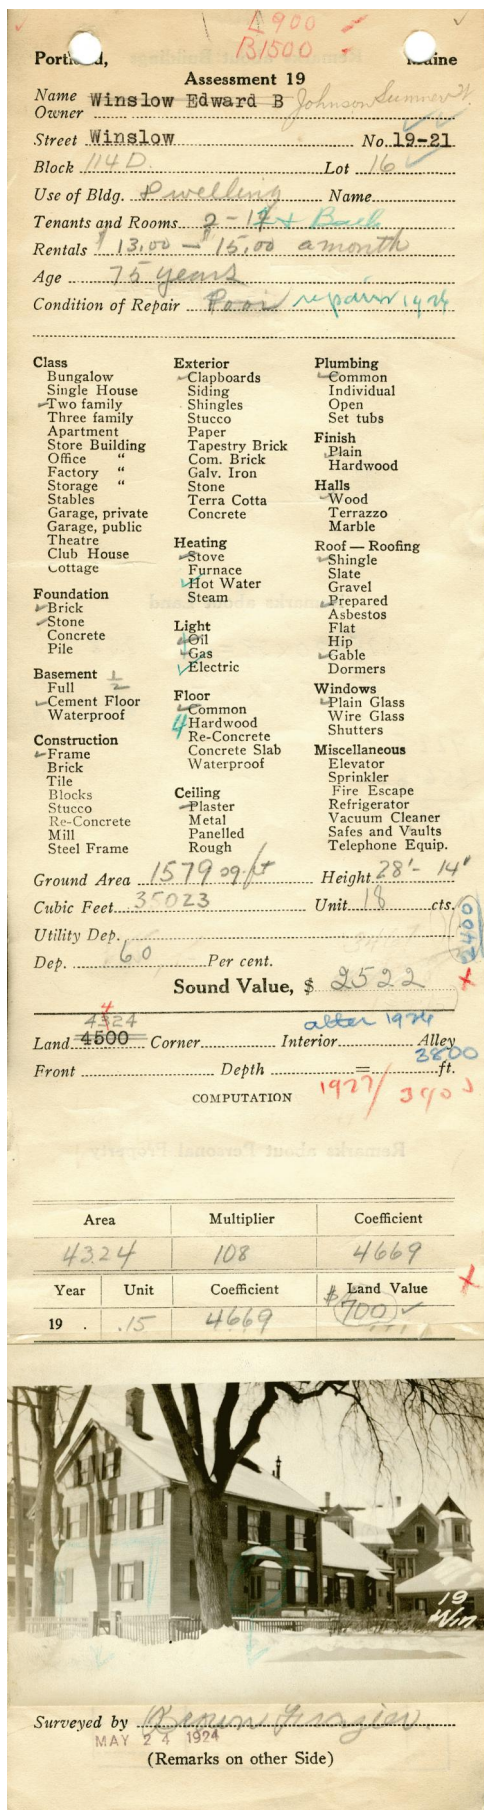 L 900
B 1500
Portland, Maine
Assessment 19
Name Winslow Edward B Johnson Sumner
Owner
Street Winslow No. 19-21
Block 114 D. Lot 16
Use of Bldg. Dwelling Name
Tenants and Rooms 2 - 1 + Bath
Rentals $13.00 - $15.00 a month
Age 75 years
Condition of Repair Poor repairs 1926
Class
Bungalow
Single House
Two family
Three family
Apartment
Store Building
Office "
Factory "
Storage "
Stables
Garage, private
Garage, public
Theatre
Club House
Cottage
Foundation
Brick
Stone
Concrete
Pile
Basement 1/2
Full
Cement Floor
Waterproof
Construction
Frame
Brick
Tile
Blocks
Stucco
Re-Concrete
Mill
Steel Frame
Exterior
Clapboards
Siding
Shingles
Stucco
Paper
Tapestry Brick
Com. Brick
Galv. Iron
Stone
Terra Cotta
Concrete
Heating
Stove
Furnace
Hot Water
Steam
Light
Oil
Gas
Electric
Floor
Common
4 Hardwood
Re-Concrete
Concrete Slab
Waterproof
Ceiling
Plaster
Metal
Panelled
Rough
Plumbing
Common
Individual
Open
Set tubs
Finish
Plain
Hardwood
Halls
Wood
Terrazzo
Marble
Roof — Roofing
Shingle
Slate
Gravel
Prepared
Asbestos
Flat
Hip
Gable
Dormers
Windows
Plain Glass
Wire Glass
Shutters
Miscellaneous
Elevator
Sprinkler
Fire Escape
Refrigerator
Vacuum Cleaner
Safes and Vaults
Telephone Equip.
Ground Area 1579 sq. ft Height 28' - 14'
Cubic Feet 35023 Unit 18 cts.
Utility Dep. 2400
Dep. 60 Per cent.
Sound Value, $ 2522
4324 after 1926
Land 4500 Corner Interior Alley
3800
Front Depth = ft.
COMPUTATION 1927/ 3900
Area Multiplier Coefficient
4324 108 4669
Year Unit Coefficient Land Value
19 . .15 4669 $700
19
Win
Surveyed by Brown Frazier
MAY 24 1924
(Remarks on other Side)